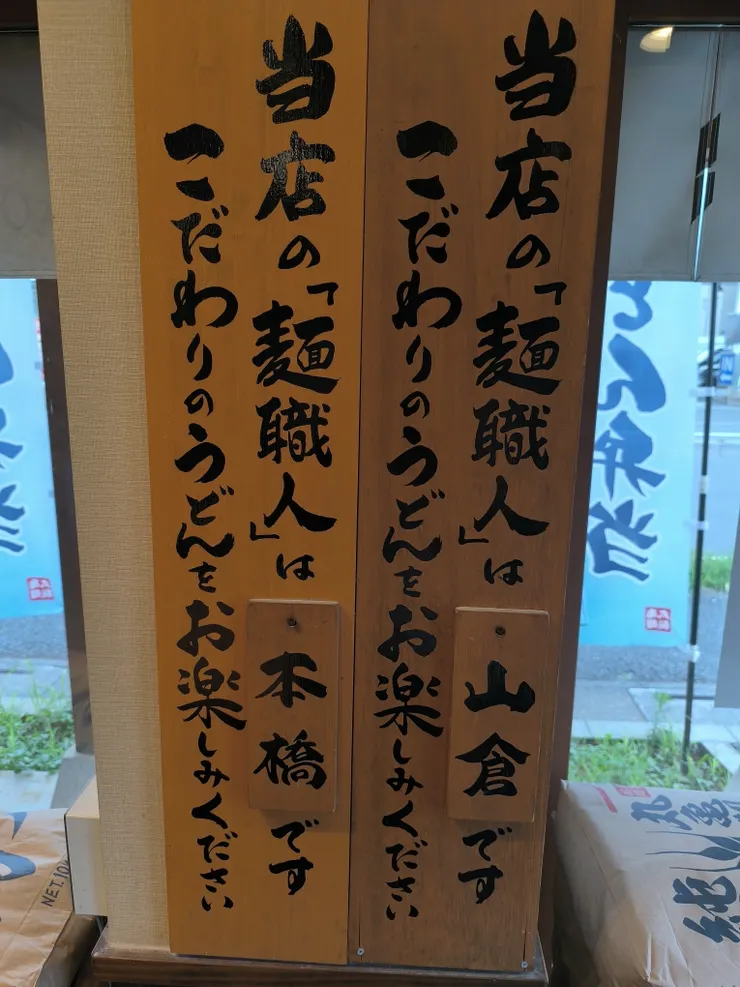 当店の「麺職人」は
山倉
です
こだわりのうどんをお楽しみください
当店の「麺職人」は
本橋
です
こだわりのうどんをお楽しみください
どん弁当
NET.10
丸亀